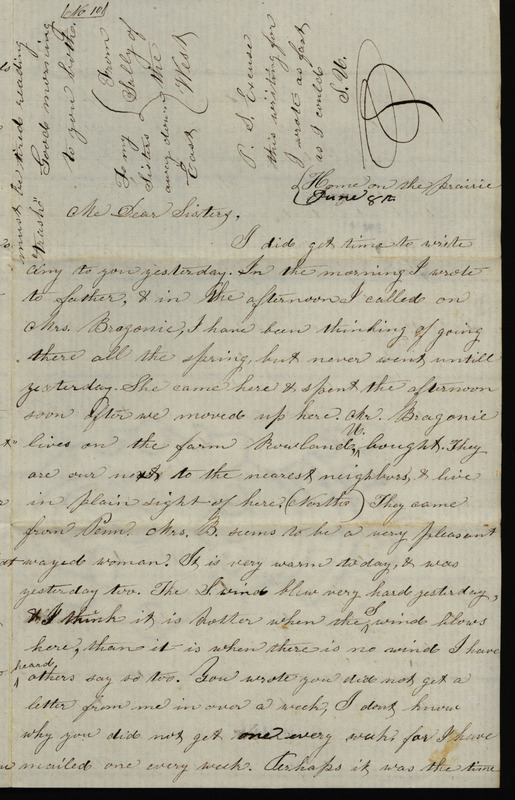 (No 10)
must be tired reading
"trash"
Good morning
to you both.
From
Silly of
the
West
To my
Sisters
away down
East
P. S. Excuse
this writing for
I wrote as fast
as I could
S. W.
Home on the prairie
June 8th
Me Dear Sisters,
I did get time to write
any to you yesterday. In the morning I wrote
to father, & in the afternoon I called on
Mrs. Bragonie, I have been thinking of going
there all the spring, but never went untill
yesterday. She came here & spent the afternoon
soon after we moved up here. Mr. Bragonie
lives on the farm Rowland W. bought. They
are our next to the nearest neighbors, & live
in plain sight of here. (North) They came
from Penn. Mrs. B. seems to be a very pleasant
wayed woman. It is very warm to day, & was
yesterday too. The S wind blew very hard yesterday,
& I think it is hotter when the S wind blows
here, than it is when there is no wind I have
heard others say so too. You wrote you did not get a
letter from me in over a week, I dont know
why you did not get one every week for I have
mailed one every week. Perhaps it was the time